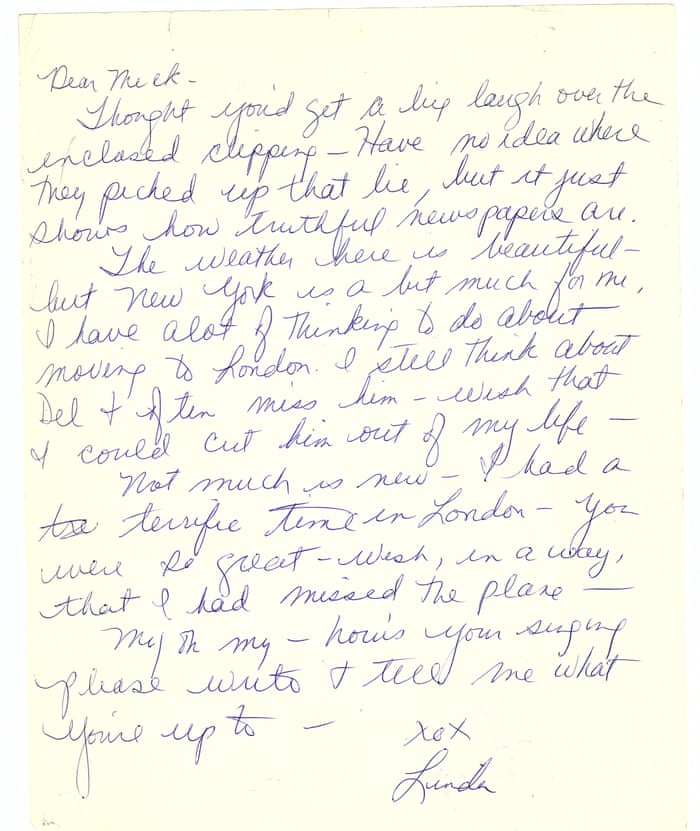 Dear Mick -
Thought you'd get a big laugh over the
enclosed clipping - Have no idea where
they picked up that lie, but it just
shows how truthful newspapers are.
The weather here is beautiful -
but New York is a bit much for me,
I have alot of thinking to do about
moving to London. I still think about
Del & often miss him - wish that
I could cut him out of my life -
Not much is new - I had a
terrific time in London - You
were so great - wish, in a way,
that I had missed the plane -
My oh my - how's your singing
please write & tell me what
you're up to -
xox
Linda